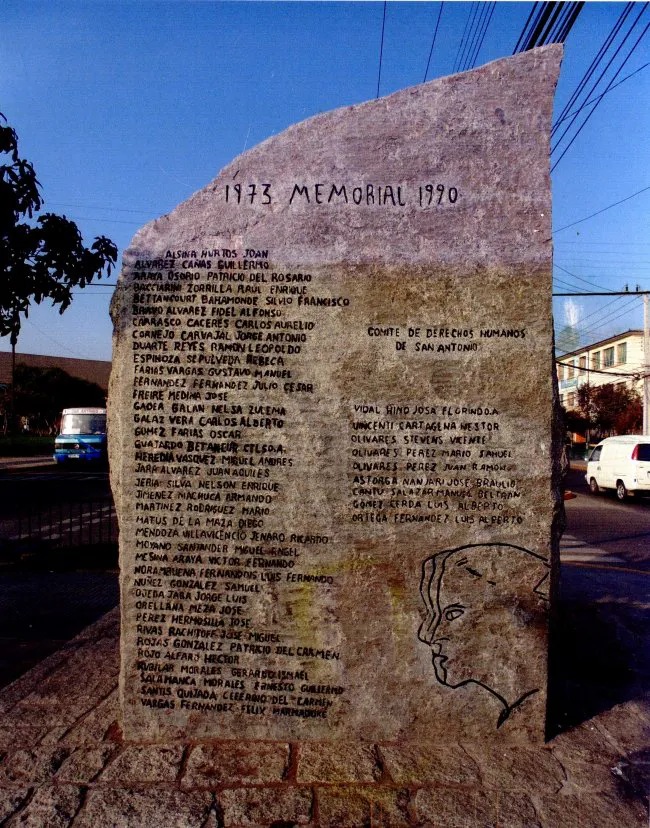 1973 MEMORIAL 1990
ALSINA HURTOS JOAN
ALVAREZ CAÑAS GUILLERMO
ARAYA OSORIO PATRICIO DEL ROSARIO
BACCIARINI ZORRILLA RAUL ENRIQUE
BETTANCOURT BAHAMONDE SILVIO FRANCISCO
BRAVO ALVAREZ FIDEL ALFONSO
CARRASCO CACERES CARLOS AURELIO
CORNEJO CARVAJAL JORGE ANTONIO
DUARTE REYES RAMON LEOPOLDO
ESPINOZA SEPULVEDA REBECA
FARIAS VARGAS GUSTAVO MANUEL
FERNANDEZ FERNANDEZ JULIO CESAR
FREIRE MEDINA JOSE
GADEA GALAN NELSA ZULEMA
GALAZ VERA CARLOS ALBERTO
GOMEZ FARIAS OSCAR
GUAJARDO BETANCUR
HEREDIA VASQUEZ MIGUEL ANDRES
JARA ALVAREZ JUAN AQUILES
JERIA SILVA NELSON ENRIQUE
JIMENEZ MACHUCA ARMANDO
MARTINEZ RODRIGUEZ MARIO
MATUS DE LA MAZA DIEGO
MENDOZA VILLAVICENCIO JENARO RICARDO
MOYANO SANTANDER MIGUEL ANGEL
MESINA ARAYA VICTOR FERNANDO
NORAMBUENA FERNANDOIS LUIS FERNANDO
NUÑEZ GONZALEZ SAMUEL
OJEDA JARA JORGE LUIS
ORELLANA MEZA JOSE
PEREZ HERMOSILLA JOSE
RIVAS RACHITOFF JOSE MIGUEL
ROJAS GONZALEZ PATRICIO DEL CARMEN
ROJO ALFARO HECTOR
RUBILAR MORALES GERARDO ISMAEL
SALAMANCA MORALES ERNESTO GUILLERMO
SANTIS QUIJADA CEFERINO DEL CARMEN
VARGAS FERNANDEZ FELIX MARMADUKE
COMITE DE DERECHOS HUMANOS
DE SAN ANTONIO
VIDAL HINO JOSA FLORINDO.A
VINCENTI CARTAGENA NESTOR
OLIVARES STEVENS VICENTE
OLIVARES PEREZ MARIO SAMUEL
OLIVARES PEREZ JUAN RAMON
ASTORGA NANJARI JOSE BRAULIO
CANTU SALAZAR MANUEL BELTRAN
GOMEZ CERDA LUIS ALBERTO
ORTEGA FERNANDEZ LUIS ALBERTO